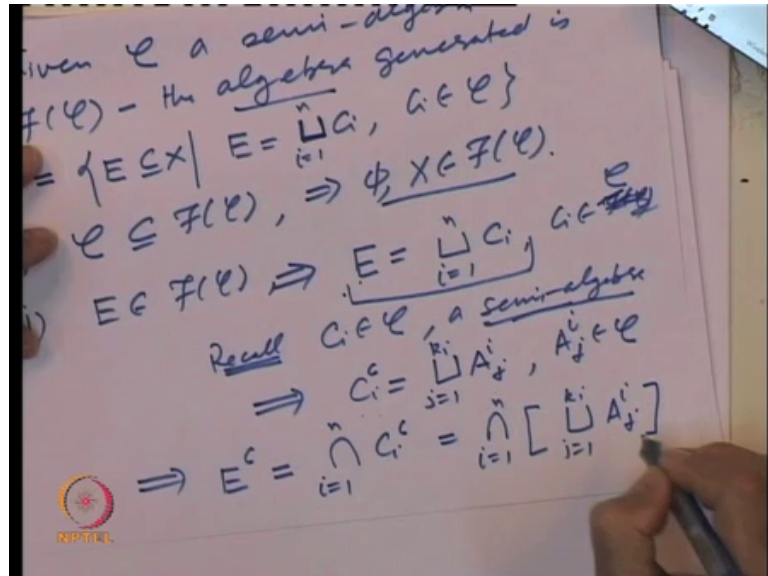 iven 𝒞 a semi-algebra
F(𝒞) - the algebra generated is
= {E ⊆ X | E = ⊔_{i=1}^{n} Ci, Ci ∈ 𝒞}
𝒞 ⊆ F(𝒞), ⇒ Φ, X ∈ F(𝒞).
i) E ∈ F(𝒞), ⇒ E = ⊔_{i=1}^{n} Ci, Ci ∈ 𝒞
Recall Ci ∈ 𝒞, a semi-algebra
⇒ Ci^c = ⊔_{j=1}^{ki} A_j^i, A_j^i ∈ 𝒞
⇒ E^c = ∩_{i=1}^{n} Ci^c = ∩_{i=1}^{n} [ ⊔_{j=1}^{ki} A_j^i ]
NPTEL